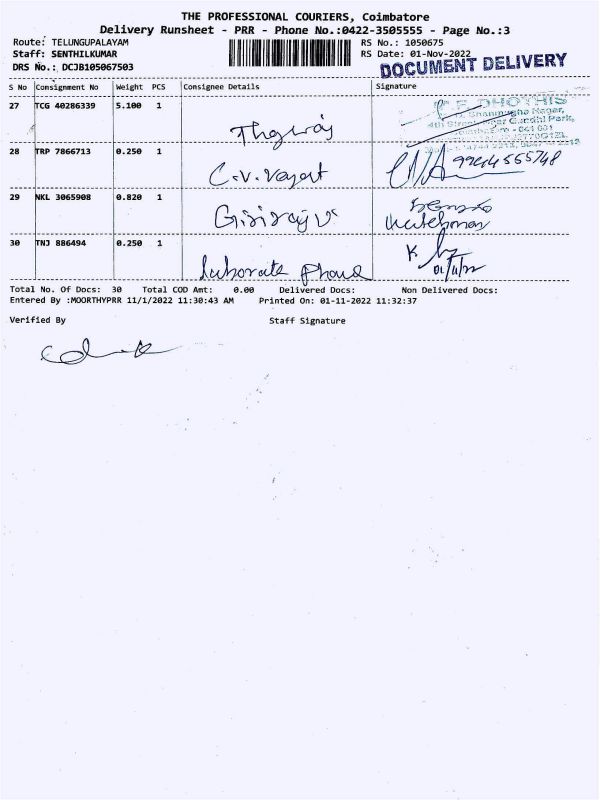 THE PROFESSIONAL COURIERS, Coimbatore
Delivery Runsheet - PRR - Phone No.:0422-3505555 - Page No.:3
Route: TELUNGUPALAYAM RS No.: 1050675
Staff: SENTHILKUMAR RS Date: 01-Nov-2022
DRS No.: DCJB105067503 DOCUMENT DELIVERY
S No Consignment No Weight PCS Consignee Details Signature
27 TCG 40286339 5.100 1
28 TRP 7866713 0.250 1 C.V. 9944555748
29 NKL 3065908 0.820 1 Giriraj
30 TNJ 886494 0.250 1 K
01/11/22
Total No. Of Docs: 30 Total COD Amt: 0.00 Delivered Docs: Non Delivered Docs:
Entered By :MOORTHYPRR 11/1/2022 11:30:43 AM Printed On: 01-11-2022 11:32:37
Verified By Staff Signature